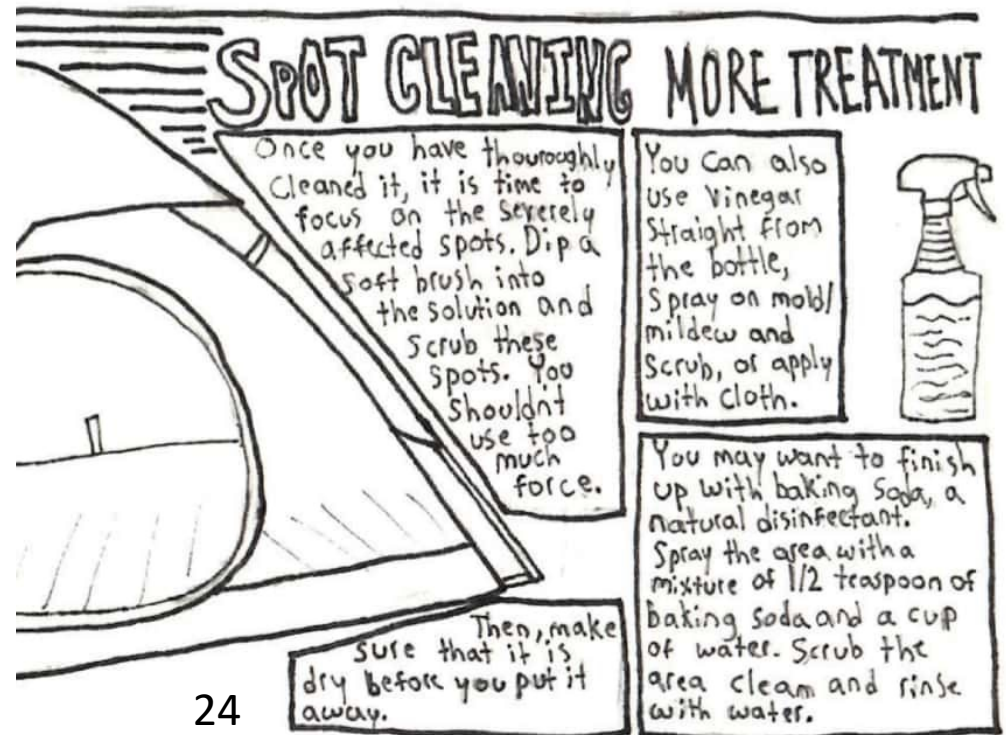 SPOT CLEANING MORE TREATMENT
Once you have thouroughly
Cleaned it, it is time to
focus on the severely
affected spots. Dip a
soft brush into
the solution and
scrub these
spots. You
shouldnt
use too
much
force.
Then, make
sure that it is
dry before you put it
away.
You can also
use vinegar
straight from
the bottle,
spray on mold/
mildew and
scrub, or apply
with cloth.
You may want to finish
up with baking soda, a
natural disinfectant.
Spray the area with a
mixture of 1/2 teaspoon of
baking soda and a cup
of water. Scrub the
area cleam and rinse
with water.
24